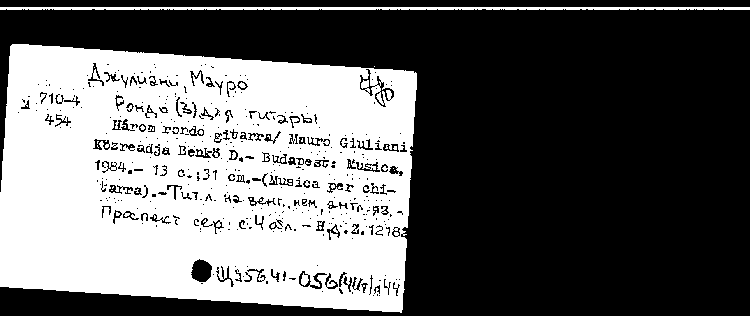 Джулиани, Мауро
710-4
454
Рондо (3) для гитары
Három rondo gitarra/ Mauro Giuliani;
Közreadja Benkő D.— Budapest: Musica,
1984.— 13 с.;31 cm.—(Musica per chi-
tarra).—Тит.л. на венг., нем., англ. яз. -
Проспект сер: с.4 обл. - Н.д. Z.12182
Щ956.41-056(4Пл)я44